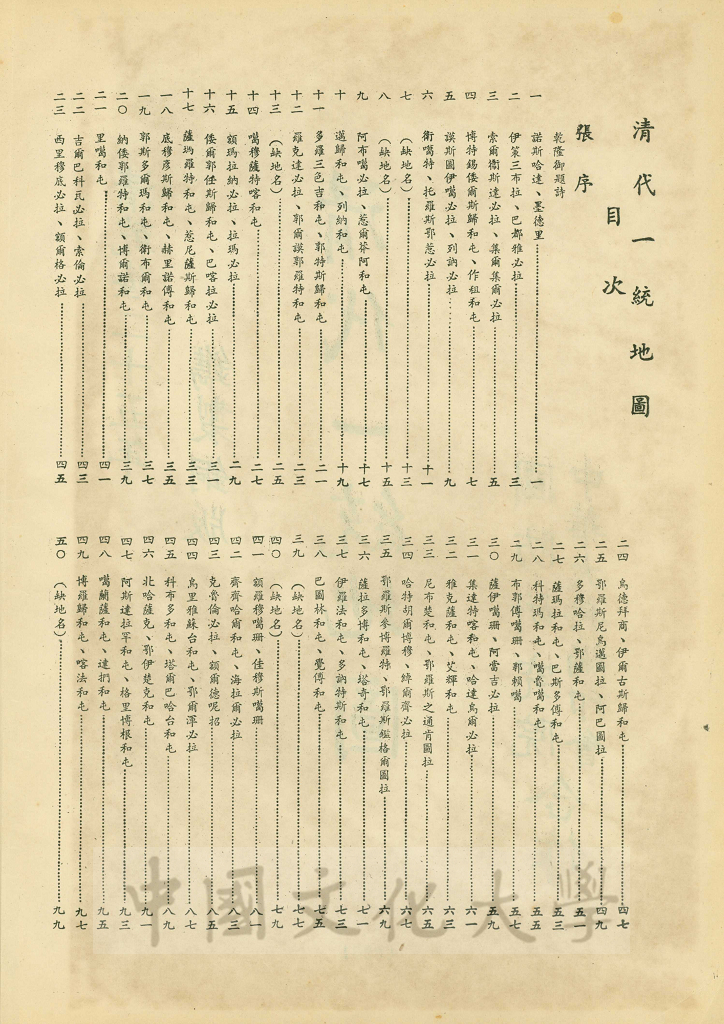 清代一統地圖
目次
張序
乾隆御題詩
一 諾斯哈達、墨德里 一
二 伊䇿三布拉、巴都雅必拉 三
三 索爾衛斯達必拉、集爾集爾必拉 五
四 博特錫倭爾斯歸和屯、作祖和屯 七
五 謨斯圖伊噶必拉、列訥必拉 九
六 衛噶特、托羅斯鄂惹必拉 十一
七 (缺地名) 十三
八 (缺地名) 十五
九 阿布噶必拉、惹爾芬阿和屯 十七
十 邁歸和屯、列納和屯 十九
十一 多羅三色吉和屯、郭特斯歸和屯 二一
十二 羅克達必拉、郭爾謨郭羅特和屯 二三
十三 (缺地名) 二五
十四 噶穆薩特喀和屯 二七
十五 額瑪拉納必拉、拉瑪必拉 二九
十六 倭爾郭任斯歸和屯、巴喀拉必拉 三一
十七 薩瑪羅特和屯、惹尼薩斯歸和屯 三三
一八 底穆彥斯歸和屯、赫里諾傅和屯 三五
一九 郭斯多爾瑪和屯、衛布爾和屯 三七
二〇 納倭郭羅特和屯、博爾諾和屯 三九
二一 里噶和屯 四一
二二 吉爾巴科瓦必拉、索倫必拉 四三
二三 西里穆底必拉、額爾格必拉 四五
二四 烏德拜商、伊爾古斯歸和屯 四七
二五 鄂羅斯尼烏邁圖拉、阿巴圖拉 四九
二六 多穆哈拉、鄂薩和屯 五一
二七 薩瑪拉和屯、巴斯多傅和屯 五三
二八 科特瑪和屯、噶魯噶和屯 五五
二九 布郭傅噶珊、郭賴噶 五七
三〇 薩伊噶珊、阿當吉必拉 五九
三一 集達特喀和屯、哈達烏爾必拉 六一
三二 雅克薩和屯、艾輝和屯 六三
三三 尼布楚和屯、鄂羅斯之通肯圖拉 六五
三四 哈特胡爾博穆、緯爾齊必拉 六七
三五 鄂羅斯參博羅特、鄂羅斯繼格爾圖拉 六九
三六 薩拉多博和屯、塔奇和屯 七一
三七 伊羅法和屯、多訥特斯和屯 七三
三八 巴圖林和屯、覺傅和屯 七五
三九 (缺地名) 七七
四〇 (缺地名) 七九
四一 額羅穆噶珊、佳穆斯噶珊 八一
四二 齊齊哈爾和屯、海拉爾必拉 八三
四三 克魯倫必拉、額爾德呢招 八五
四四 烏里雅蘇台和屯、鄂爾渾必拉 八七
四五 科布多和屯、塔爾巴哈台和屯 八九
四六 北哈薩克、鄂伊楚克和屯 九一
四七 阿斯達拉罕和屯、格里博根和屯 九三
四八 噶蘭薩和屯、達捫和屯 九五
四九 博羅歸和屯、喀法和屯 九七
五〇 (缺地名) 九九
中國文化大學